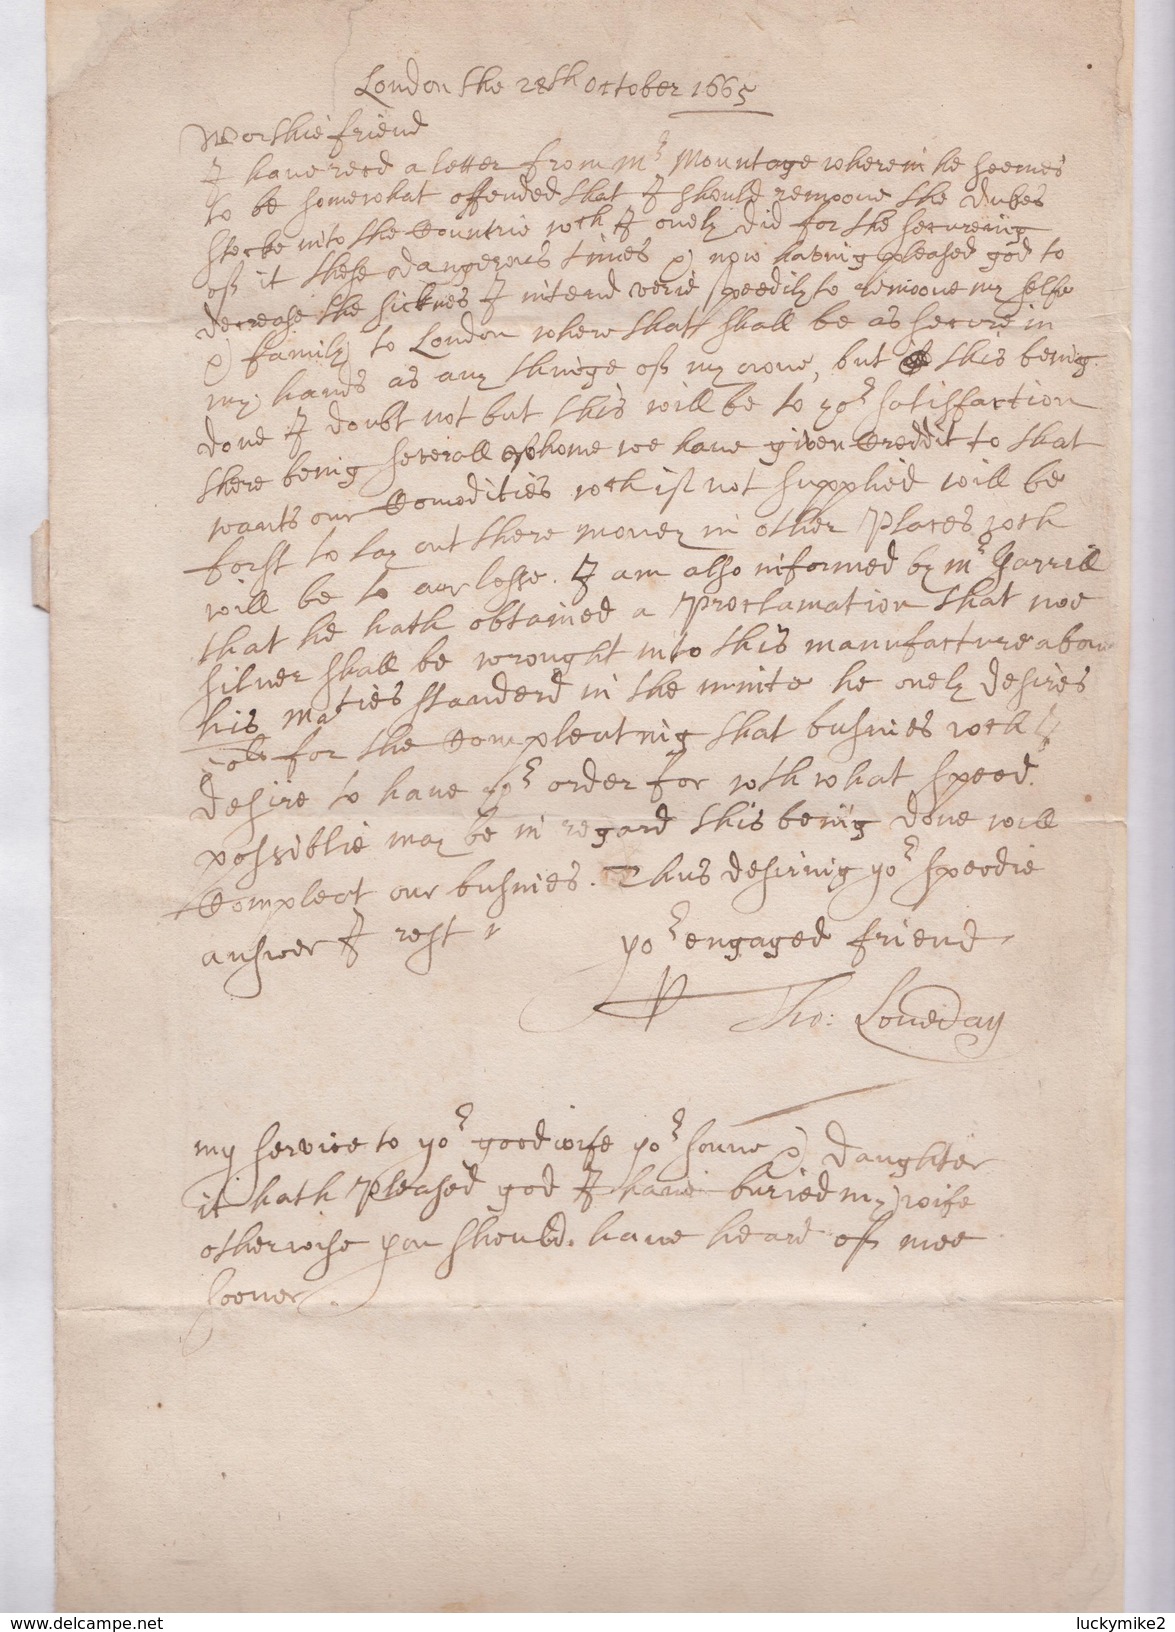 London the 28th October 1665
Worthie friend
I haue recd a letter from Mr Mountage wherein he seemes
to be somewhat offended that I should remooue the Dukes
stocke into the Countrie wch I onely did for the secureing
off it these dangerous times & now haveing pleased god to
decrease the sicknes I intend verie speedily to remooue my selfe
& family to London where that shall be as secure in
my hands as any thinge off my owne, but this being
done I doubt not but this will be to yor satisfaction
there being severall whome we haue given Creddit to that
wants our Comodities wch iff not supplied will be
forst to lay out there money in other Places wch
will be to our losse. I am also informed by mr
that he hath obtained a Proclamation that noe
siluer shall be wrought into this manufacture aboue
his maties standerd in the minte he onely desires
for the Compleating that busines wch I
desire to haue yor order for wth what speed
possiblie may be in regard this being done will
Compleat our busines. Thus desiring yor speedie
answer I rest
yor engaged friend
Tho: Loueday
my service to yor goodwife yor sonne & daughter
it hath Pleased god I haue buried my wife
otherwise you should haue heard off mee
sooner.
www.delcampe.net
luckymike2